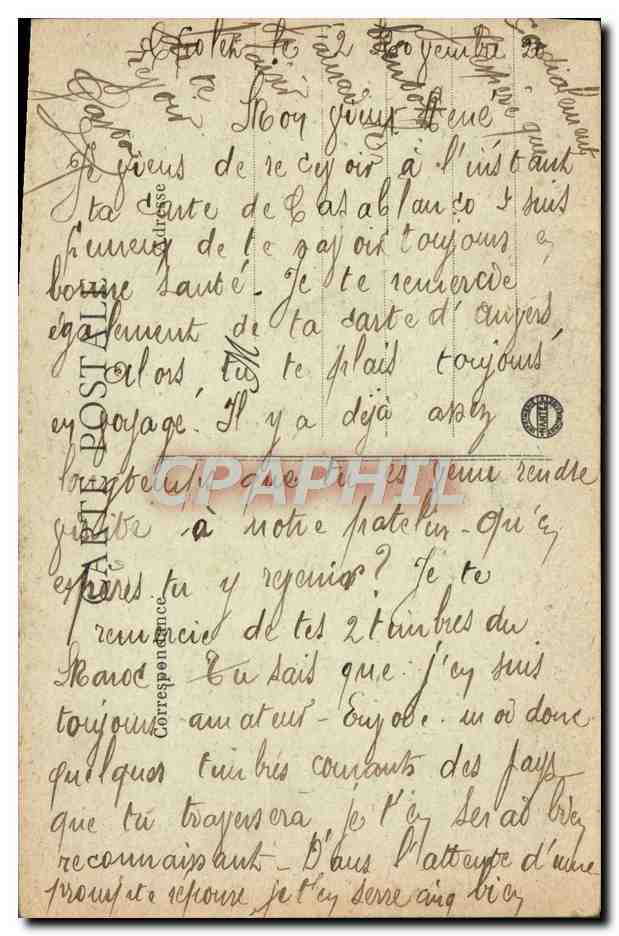 le 2 Novembre 20
Mon vieux René
Je viens de recevoir à l'instant
ta carte de Casablanca je suis
heureux de te savoir toujours en
bonne santé. Je te remercie
également de ta carte d'Angers
Alors, tu te plais toujours
en voyage. Il y a déjà assez
longtemps que tu es venu rendre
visite à notre patelin - Qu'en
espères tu y revenir? Je te
remercie de tes 2 timbres du
Maroc Tu sais que j'en suis
toujours amateur - Envoie moi donc
quelques timbres courants des pays
que tu traversera je t'en serai bien
reconnaissant - Dans l'attente d'une
prompte réponse, je t'en serre cinq bien
Cordialement
CARTE POSTALE
Correspondance
Adresse
CPAPHIL
NANTES